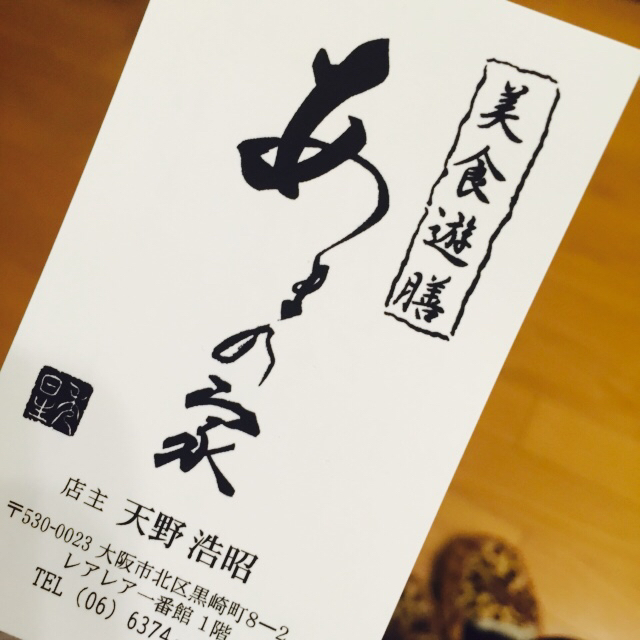 美食遊膳
あまの家
店主 天野 浩昭
〒530-0023 大阪市北区黒崎町8-2
レアレア一番館 1階
TEL (06) 6374